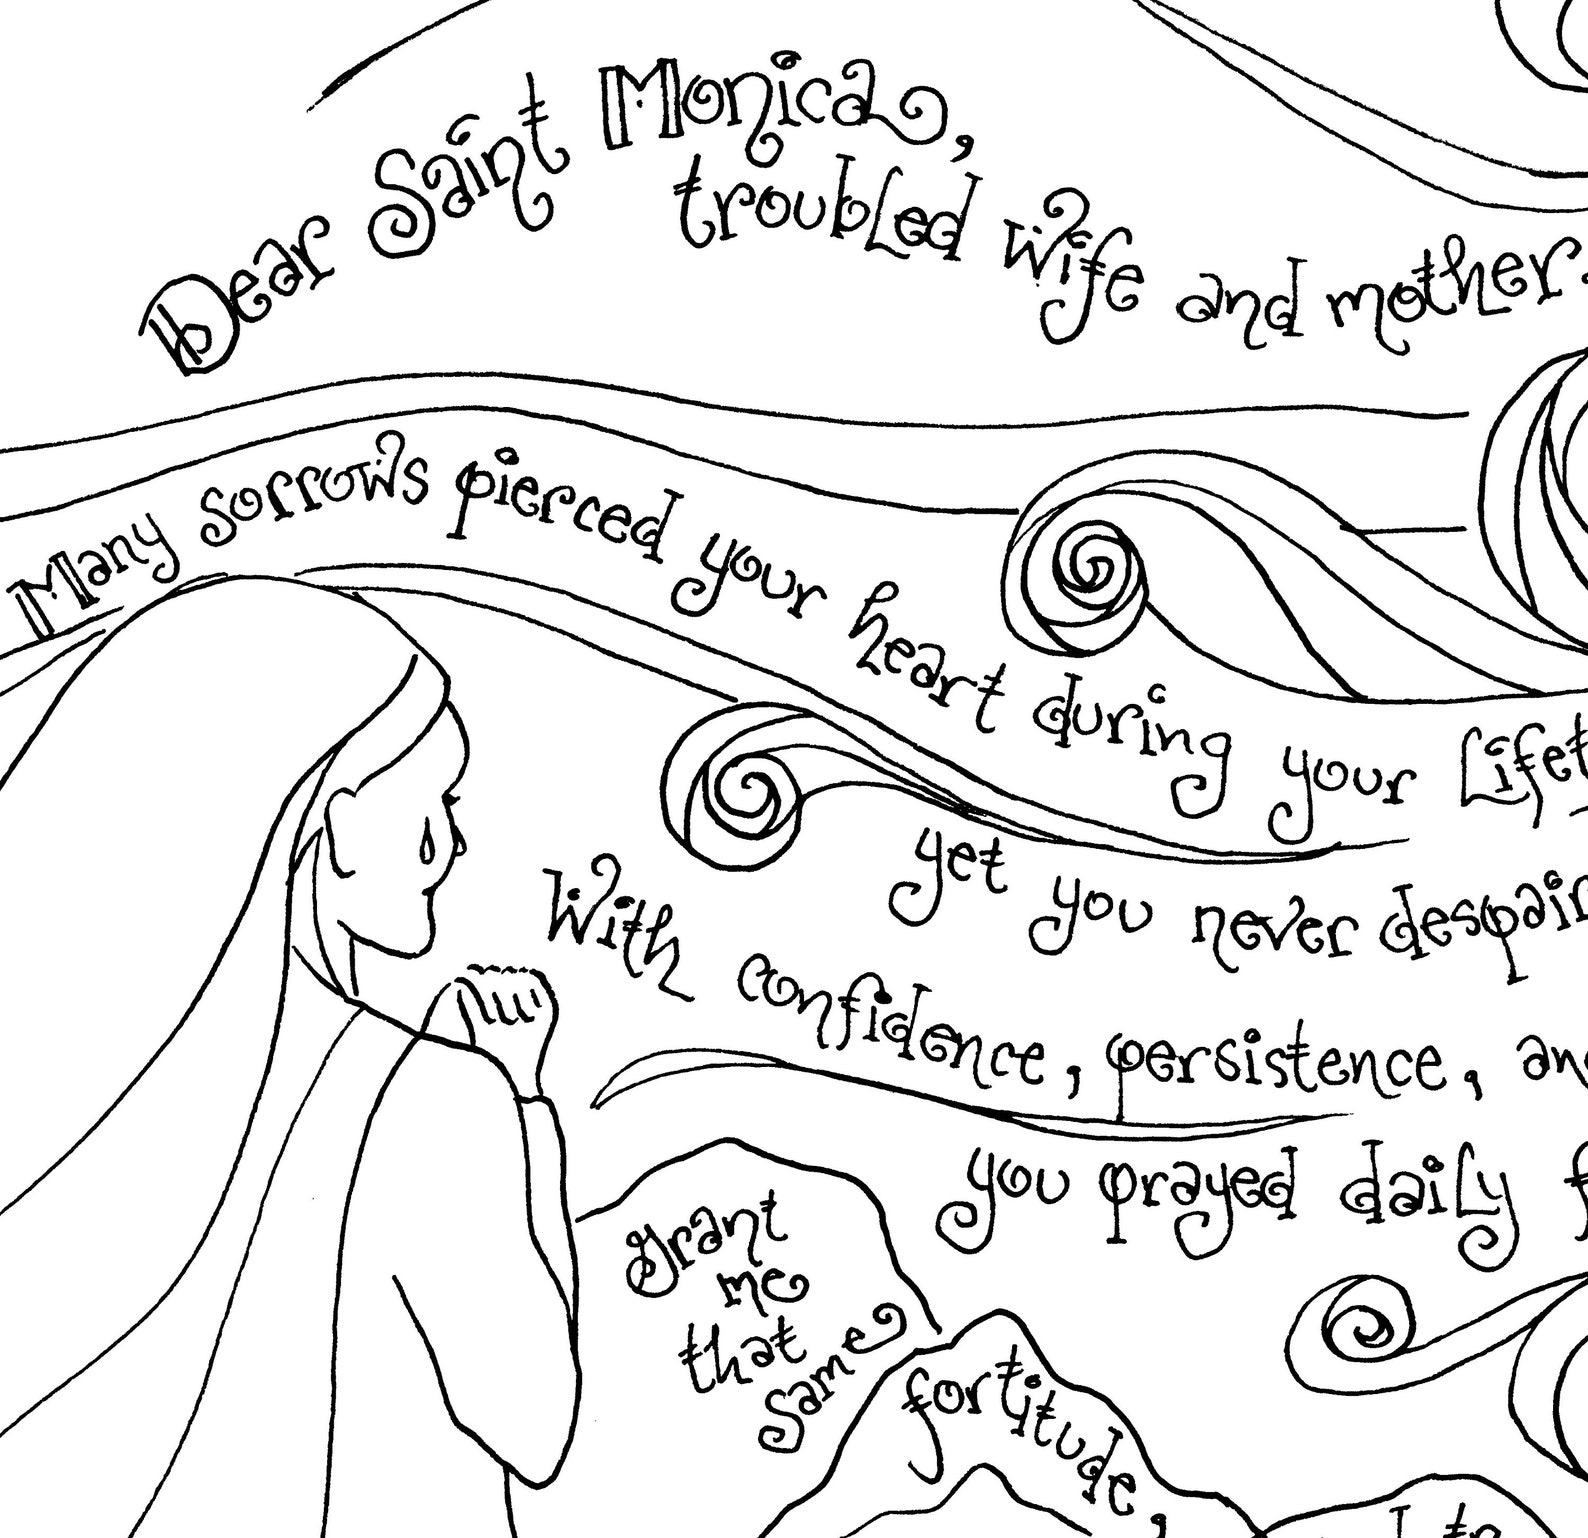 Dear Saint Monica,
troubled wife and mother.
Many sorrows pierced your heart during your
yet you never despair
With confidence, persistence,
you prayed daily
grant
me
that
same
fortitude,